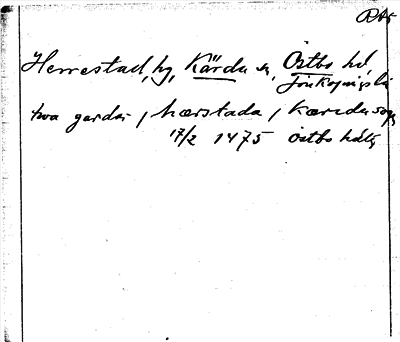 RAp
Herrestad, by, Kärda sn, Östbo hd,
Jönköpings län
two gardar j hærstada j Kærda sogn
17/2 1475 östbo hd